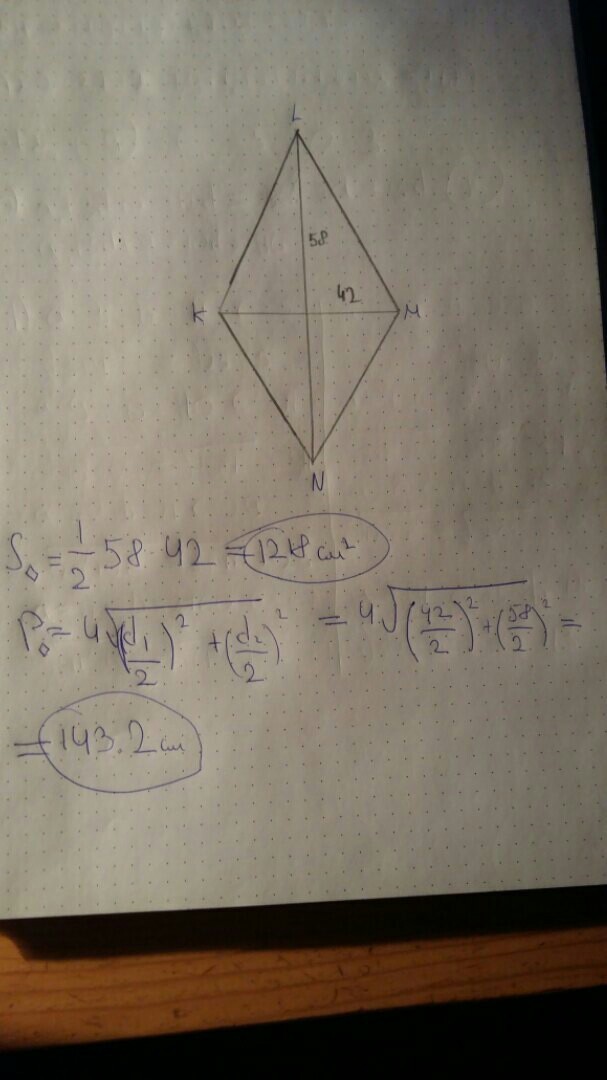 L
58
42
K M
N
S◊ = 1/2 58 42 = 1218 см²
P◊ = 4√((d₁/2)² + (d₂/2)²) = 4√((42/2)² + (58/2)²) =
= 143.2 см